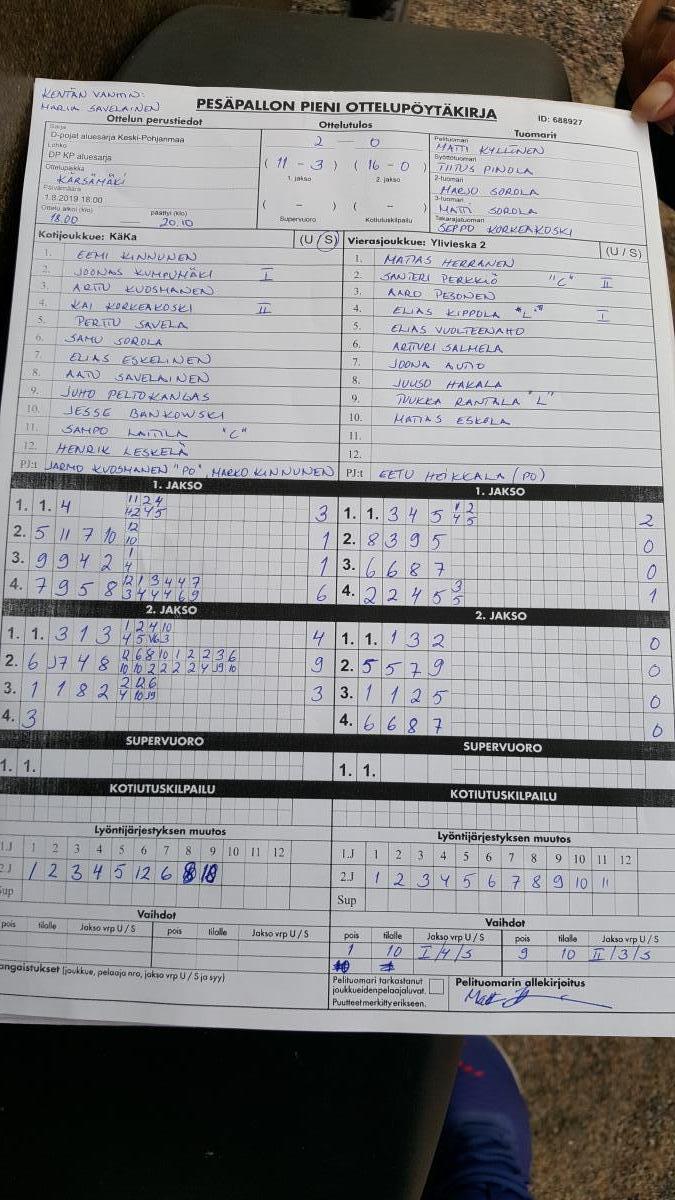 KENTÄN VANHIN:
MARIA SAVELAINEN
PESÄPALLON PIENI OTTELUPÖYTÄKIRJA
ID: 688927
Ottelun perustiedot
Sarja
D-pojat aluesarja Keski-Pohjanmaa
Lohko
DP KP aluesarja
Ottelupaikka
KÄRSÄMÄKI
Päivämäärä
1.8.2019 18.00
Ottelu alkoi (klo) päättyi (klo)
18.00 20.10
Ottelutulos
2 — 0
( 11 - 3 ) ( 16 - 0 )
1. jakso 2. jakso
( - ) ( - )
Supervuoro Kotiutuskilpailu
Tuomarit
Pelituomari
MATTI KYLLINEN
Syöttötuomari
TIITUS PINOLA
2-tuomari
MARJO SOROLA
3-tuomari
MATTI SOROLA
Takarajatuomari
SEPPO KORKEAKOSKI
Kotijoukkue: KäKa (U / S)
1. EEMI KINNUNEN
2. JOONAS KUMPUMÄKI I
3. ARTTU KUOSMANEN
4. KAI KORKEAKOSKI II
5. PERTTU SAVELA
6. SAMU SOROLA
7. ELIAS ESKELINEN
8. AATU SAVELAINEN
9. JUHO PELTOKANGAS
10. JESSE BANKOWSKI
11. SAMPO LAITILA "C"
12. HENRIK LESKELÄ
PJ:t JARMO KUOSMANEN "PO", MARKO KINNUNEN
Vierasjoukkue: Ylivieska 2 (U / S)
1. MATIAS HERRANEN
2. SANTERI PERKKIÖ "C" II
3. AARO PESONEN
4. ELIAS KIPPOLA "L" I
5. ELIAS VUOLTEENAHO
6. ARTTURI SALMELA
7. JOONA AUTIO
8. JUUSO HAKALA
9. TUUKKA RANTALA "L"
10. MATIAS ESKOLA
11.
12.
PJ:t EETU HEIKKALA (PO)
1. JAKSO
1. 1. 4 11 2 4 3
4 2 4 5
2. 5 11 7 10 12 1
10
3. 9 9 4 2 1 1
4
4. 7 9 5 8 12 1 3 4 4 7 6
3 4 4 4 6 9
1. JAKSO
1. 1. 3 4 5 1 2 2
4 5
2. 8 3 9 5 0
3. 6 6 8 7 0
4. 2 2 4 5 3 1
5
2. JAKSO
1. 1. 3 1 3 1 2 4 10 4
2. 6 J7 4 8 12 6 8 10 1 2 2 3 6 9
10 10 2 2 2 2 4 J9 10
3. 1 1 8 2 2 12 6 3
4 10 J9
4. 3
2. JAKSO
1. 1. 1 3 2 0
2. 5 5 7 9 0
3. 1 1 2 5 0
4. 6 6 8 7 0
SUPERVUORO
1. 1.
SUPERVUORO
1. 1.
KOTIUTUSKILPAILU
KOTIUTUSKILPAILU
Lyöntijärjestyksen muutos
1.J 1 2 3 4 5 6 7 8 9 10 11 12
2.J 1 2 3 4 5 12 6 8
Sup
Lyöntijärjestyksen muutos
1.J 1 2 3 4 5 6 7 8 9 10 11 12
2.J 1 2 3 4 5 6 7 8 9 10 11
Sup
Vaihdot
pois tilalle Jakso vrp U / S pois tilalle Jakso vrp U / S
Vaihdot
pois tilalle Jakso vrp U / S pois tilalle Jakso vrp U / S
1 10 I/4/S 9 10 II/3/S
angaistukset (joukkue, pelaaja nro, jakso vrp U / S ja syy)
Pelituomari tarkastanut
joukkueiden pelaajaluvat.
Puutteet merkitty erikseen.
Pelituomarin allekirjoitus